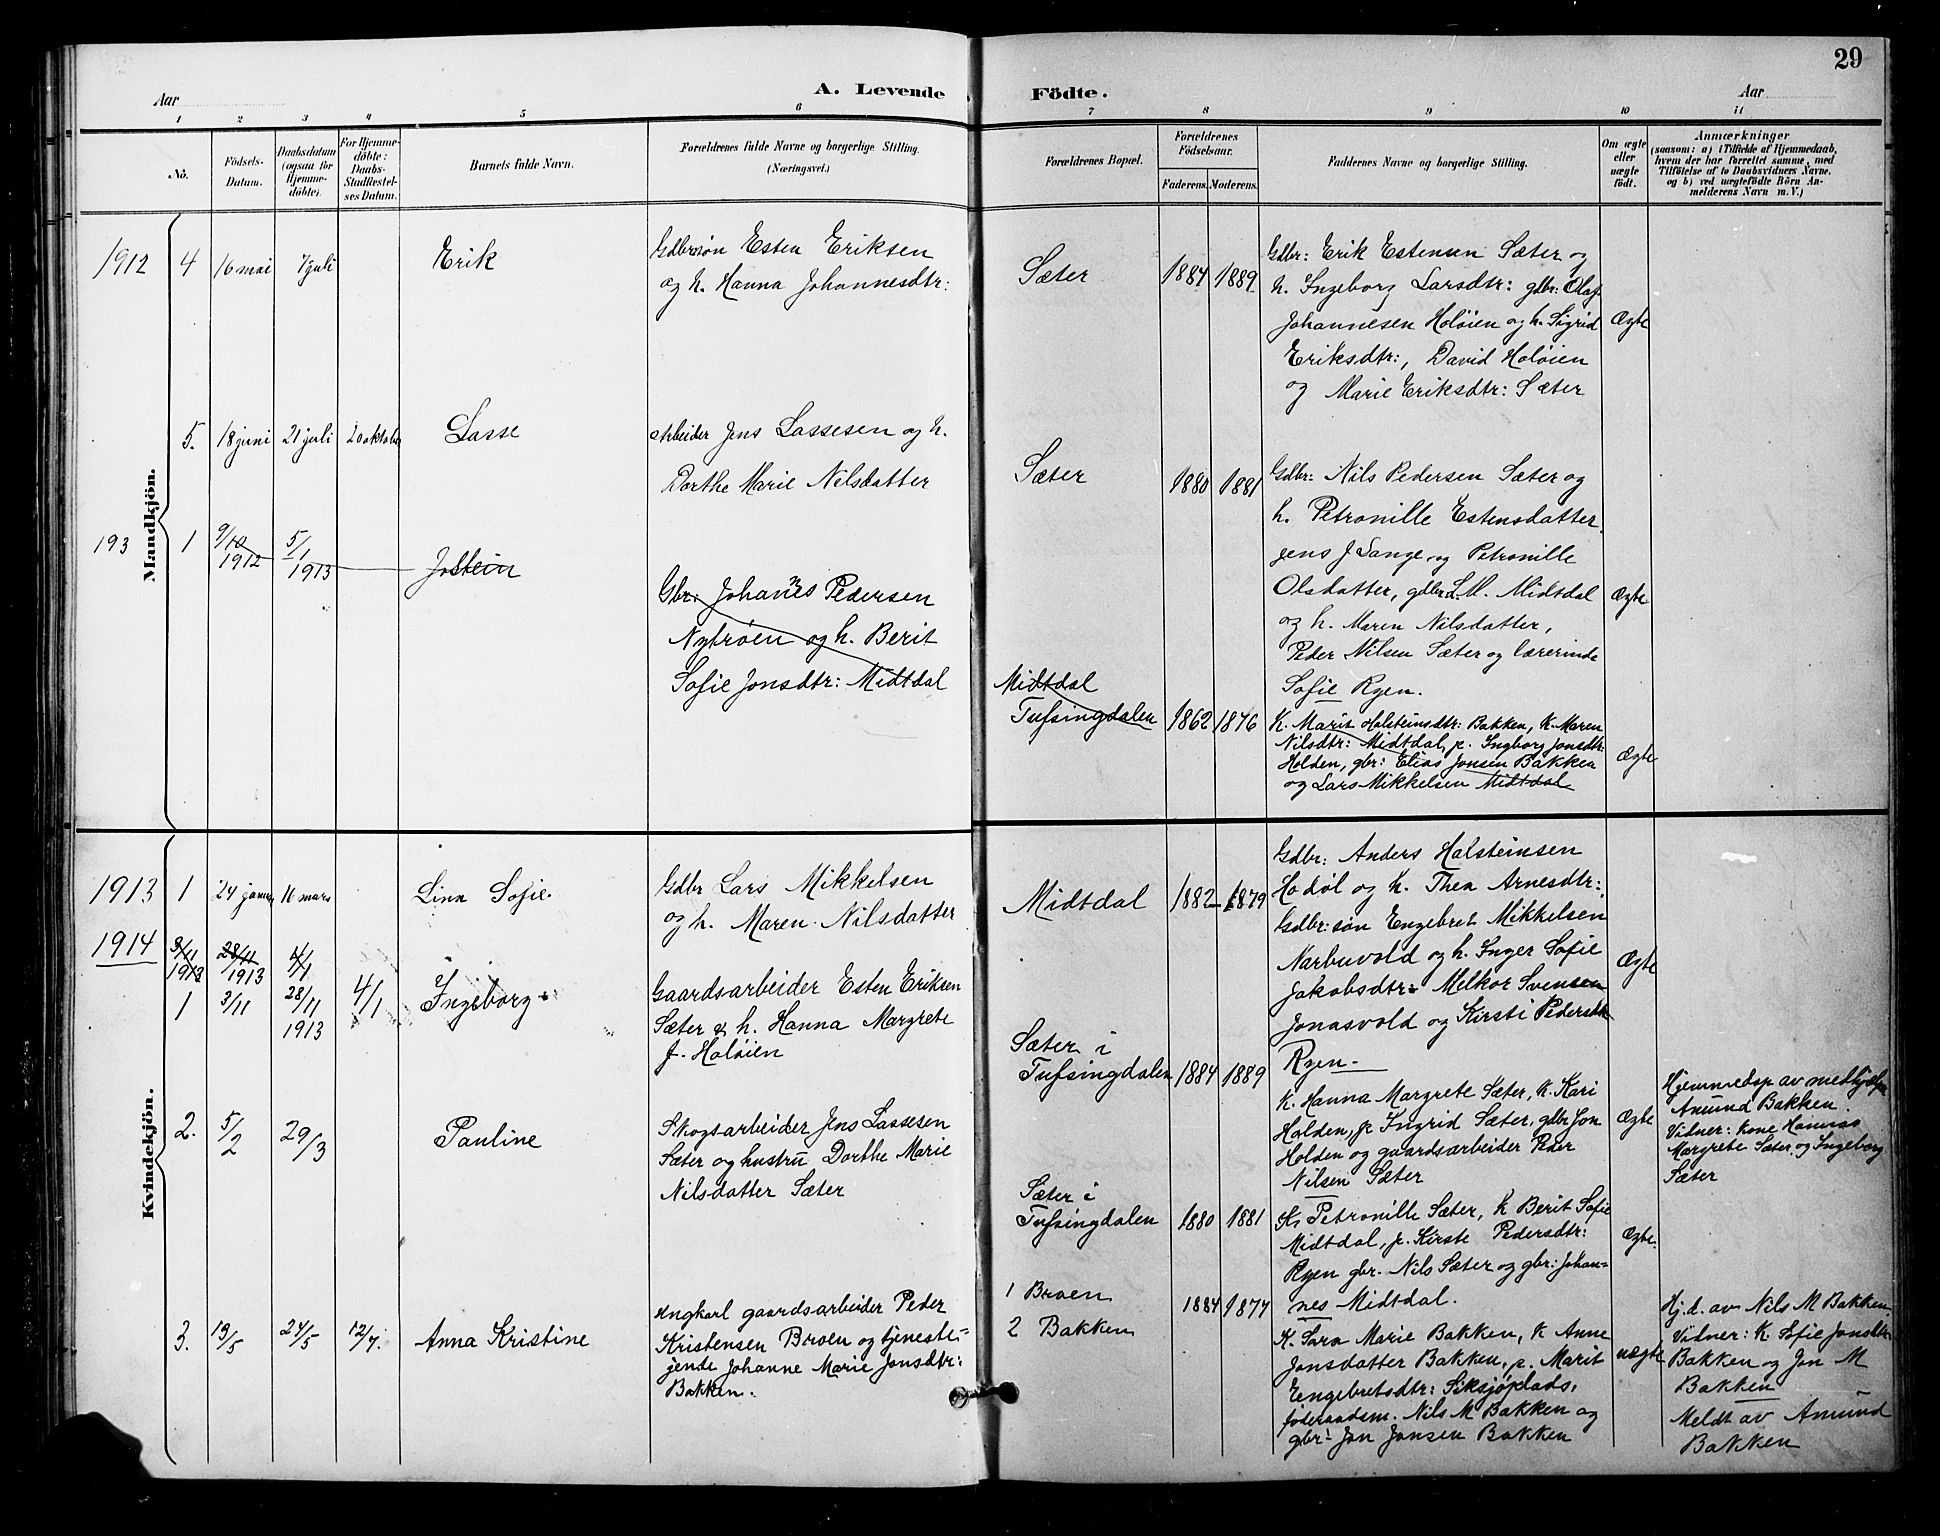 29
Aar
A. Levende
Födte.
Aar
1 2 3 4 5 6 7 8 9 10 11
No.
Födsels-
Datum.
Daabsdatum
(ogsaa for
Hjemme-
döbte).
For Hjemme-
döbte:
Daabs-
Stadfæstel-
ses Datum.
Barnets fulde Navn.
Forældrenes fulde Navne og borgerlige Stilling.
(Næringsvei.)
Forældrenes Bopæl.
Forældrenes
Födselsaar.
Faderens. Moderens.
Faddernes Navne og borgerlige Stilling.
Om ægte
eller
uægte
födt.
Anmærkninger
(saasom: a) i Tilfælde af Hjemmedaab,
hvem der har forrettet samme, med
Tilföielse af to Daabsvidners Navne.
og b) ved uægtefödte Börn An-
melderens Navn m. V.)
Mandkjön.
1912 4 16 mai 7 juli Erik
Gdbrsøn Esten Eriksen
og h. Hanna Johannesdtr:
Sæter 1884 1889
Gdbr: Erik Estensen Sæter og
h. Ingeborg Larsdtr: gdbr: Olaf
Johannesen Holøien og h. Sigrid
Eriksdtr:, David Holøien
og Marie Eriksdtr: Sæter
Ægte
5. 18 juni 21 juli 20 oktober Lasse
Arbeider Jens Lassesen og h.
Dorthe Marie Nilsdatter
Sæter 1880 1881
Gdbr: Nils Pedersen Sæter og
h. Petronille Estensdatter,
Jens J Lange og Petronille
Olsdatter, gdbr L.M. Midtdal
og h. Maren Nilsdatter,
Peder Nilsen Sæter og lærerinde
Sofie Ryen.
Ægte
193 1 9/10 1912 5/1 1913 Jostein
Gbr: Johannes Pedersen
Nytrøen og h. Berit
Sofie Jonsdtr: Midtdal
Midtdal
Tufsingdalen 1862 1876
K. Marit Holsteinsdtr: Bakken, K. Maren
Nilsdtr: Midtdal, p. Ingborg Jonsdtr:
Holden, gbr: Elias Jonsen Bakken
og Lars Mikkelsen Midtdal
Ægte
Kvindekjön.
1913 1 24 januar 16 mars Lina Sofie.
Gdbr Lars Mikkelsen
og h. Maren Nilsdatter
Midtdal 1882 1879
Gdbr: Anders Holsteinsen
Hodøl og h. Thea Arnesdtr:,
Gdbr:søn Engebret Mikkelsen
Narbuvold og h. Inger Sofie
Jakobsdtr: Melkor Svensen
Jonasvold og Kirsti Pedersdtr
Ryen.
Ægte
1914 3/11 1913 28/11 1913 4/1
1 3/11 28/11 1913 4/1 Ingeborg
Gaardsarbeider Esten Eriksen
Sæter & h. Hanna Margrete
f. Holøien
Sæter i
Tufsingdalen 1884 1889
K. Hanna Margrete Sæter, K. Kari
Holden, p. Ingrid Sæter, gdbr Jon
Holden og gaardsarbeider Peder
Nilsen Sæter
Ægte
Hjemmedøp av medhjælper
Amund Bakken.
Vidner: Kone Hanna
Margrete Sæter og Ingeborg
Sæter
2. 5/2 29/3 Pauline
Skogsarbeider Jens Lassesen
Sæter og hustru Dorthe Marie
Nilsdatter Sæter
Sæter i
Tufsingdalen 1880 1881
K. Petronille Sæter, K Berit Sofie
Midtdal, p. Kirste Pedersdtr:
Ryen gbr. Nils Sæter og gbr: Johan-
nes Midtdal.
Ægte.
3. 13/5 24/5 12/7. Anna Kristine
Ungkarl gaardsarbeider Peder
Kristensen Broen og tjeneste-
jende Johanne Marie Jonsdtr:
Bakken.
1 Broen
2 Bakken
1884 1874
K. Sara Marie Bakken, K Anne
Jonsdatter Bakken, p. Marit
Engebretsdtr: Siksjöplads,
føderaadsm. Nils M Bakken og
gbr: Jon Jonsen Bakken
uægte
Hj.d. av Nils M Bakken.
Vidner: K. Sofie Jonsdtr
Bakken og Jon M
Bakken
Meldt av Amund
Bakken